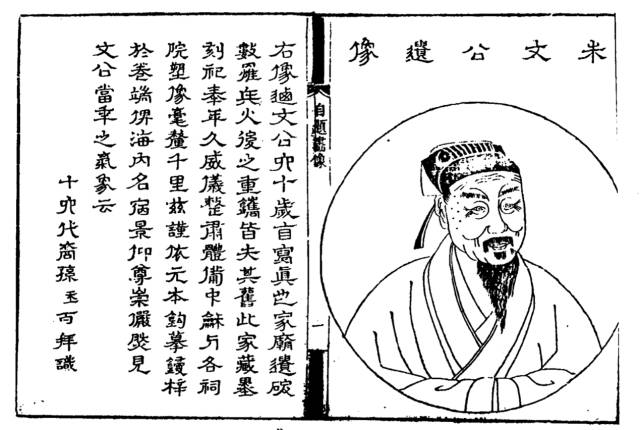 朱文公遺像
自題畫像
一
右像迺文公六十歲自寫眞也家廟遺碑
數罹兵火後之重鐫皆失其舊此家藏墨
刻祀奉年久威儀整肅體備中龢與各祠
院塑像毫釐千里茲謹依元本鈎摹鐫梓
於卷端俾海內名宿景仰尊崇儼然見
文公當年之氣象云
十六代裔孫玉百拜識